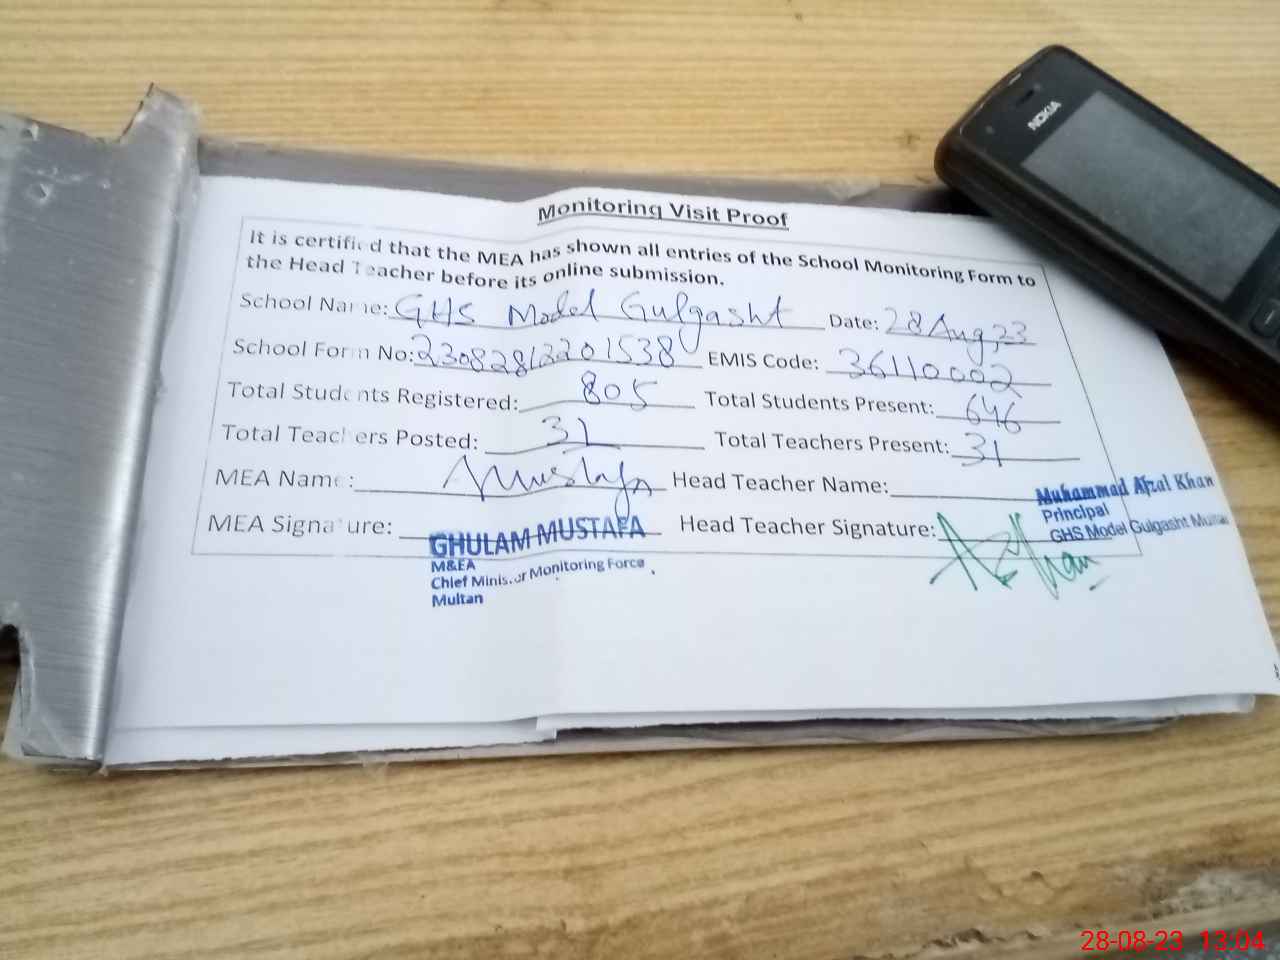 NOKIA
Monitoring Visit Proof
It is certified that the MEA has shown all entries of the School Monitoring Form to
the Head Teacher before its online submission.
School Name: GHS Model Gulgasht Date: 28 Aug, 23
School Form No: 23082812201538 EMIS Code: 36110002
Total Students Registered: 805 Total Students Present: 646
Total Teachers Posted: 31 Total Teachers Present: 31
MEA Name: Mustafa Head Teacher Name: Muhammad Afzal Khan
Principal
MEA Signature: GHULAM MUSTAFA Head Teacher Signature: GHS Model Gulgasht Multan
M&EA
Chief Minister Monitoring Force
Multan
28-08-23 13:04